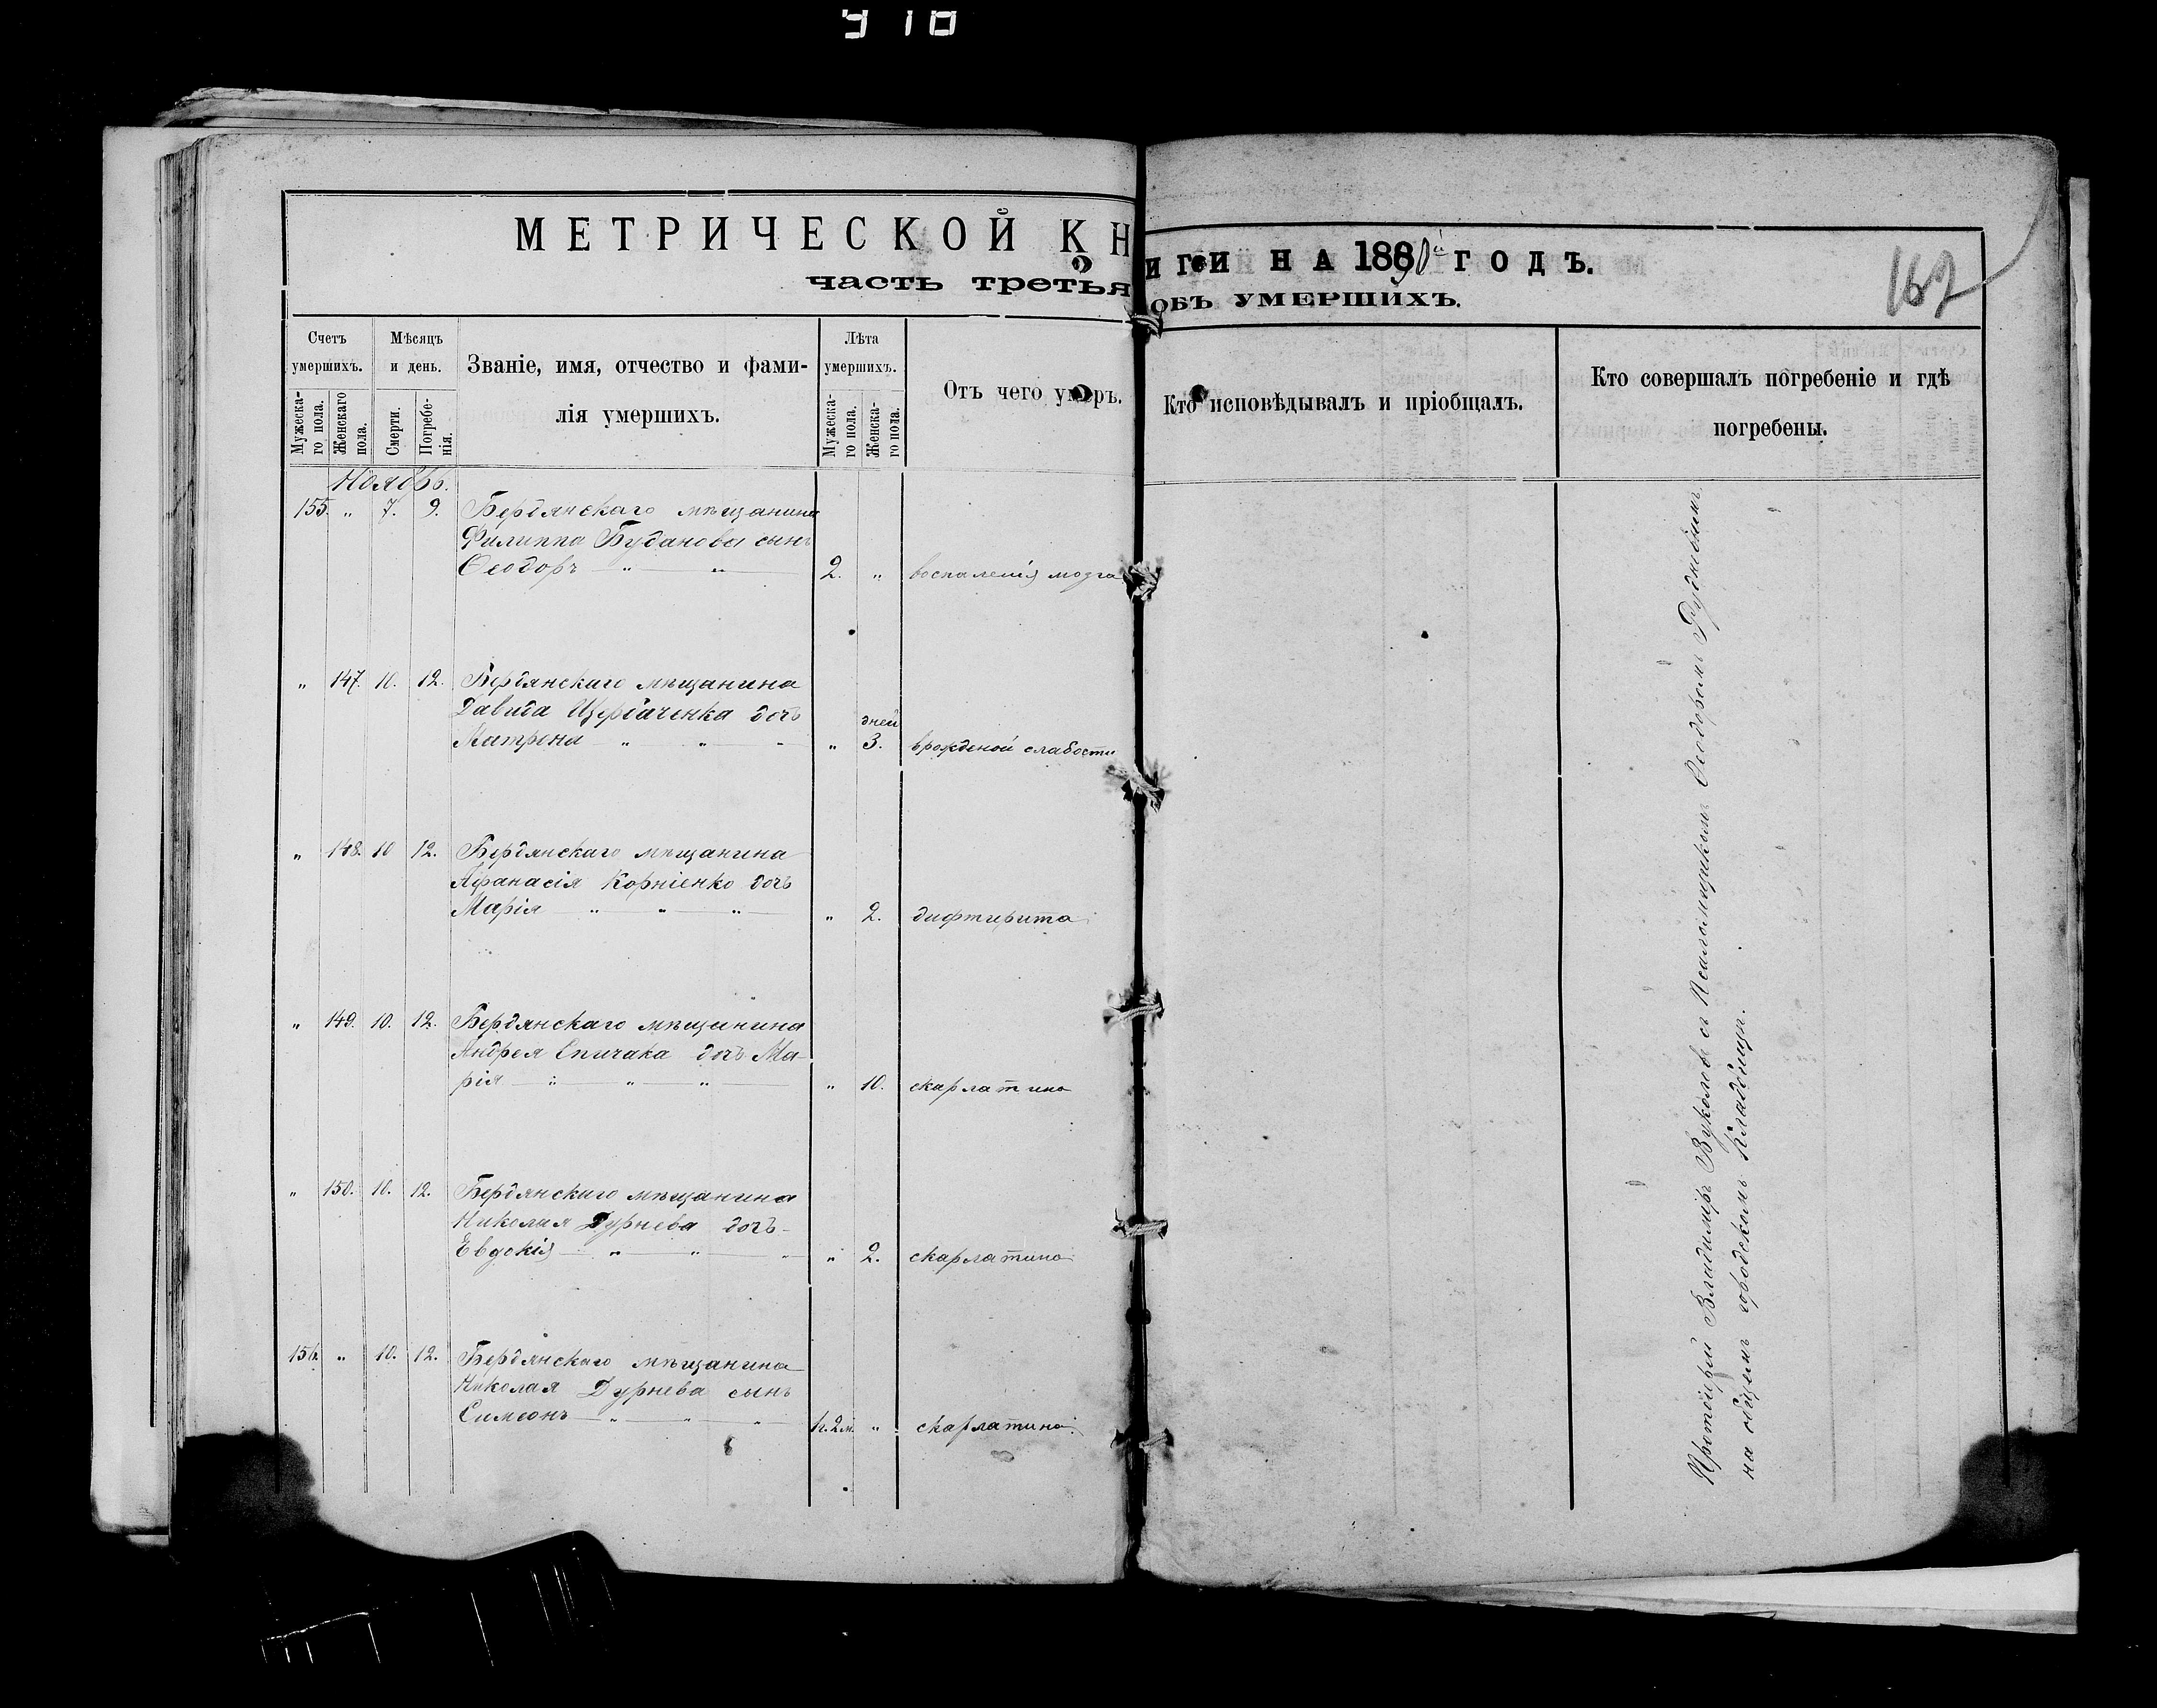 МЕТРИЧЕСКОЙ КНИГИ НА 1890й ГОДЪ.
часть третья ОБЪ УМЕРШИХЪ.
162
Счетъ умершихъ.
Мужеска-го пола.
Женскаго пола.
Мѣсяцъ и день.
Смерти.
Погребе-нія.
Званіе, имя, отчество и фами-
лія умершихъ.
Лѣта умершихъ.
Мужеска-го пола.
Женска-го пола.
Отъ чего умеръ.
Кто исповѣдывалъ и пріобщалъ.
Кто совершалъ погребеніе и гдѣ
погребены.
Ноябрь.
155. „ 7. 9. Бердянскаго мѣщанина
Филиппа Буданова сынъ
Ѳеодоръ „ „ 2. „ воспаленія мозга
„ 147. 10. 12. Бердянскаго мѣщанина
Давида Щербаченка дочь
дней
Матрона „ „ „ „ 3. врожденой слабости
„ 148. 10 12. Бердянскаго мѣщанина
Афанасія Корніенко дочь
Марія „ „ „ „ 2. дифтирита
„ 149. 10. 12. Бердянскаго мѣщанина
Андрея Спичака дочь Ма-
рія „ „ „ „ 10. скарлатина
„ 150. 10. 12. Бердянскаго мѣщанина
Николая Дурнева дочь
Евдокія „ „ „ „ 2. скарлатина
156. „ 10. 12. Бердянскаго мѣщанина
Николая Дурнева сынъ
Симеонъ „ „ „ 1г. 2м. „ скарлатина
Протоіерей Владиміръ Вуколовъ съ Псаломщикомъ Ѳеодоромъ
на общемъ городскомъ кладбищѣ.